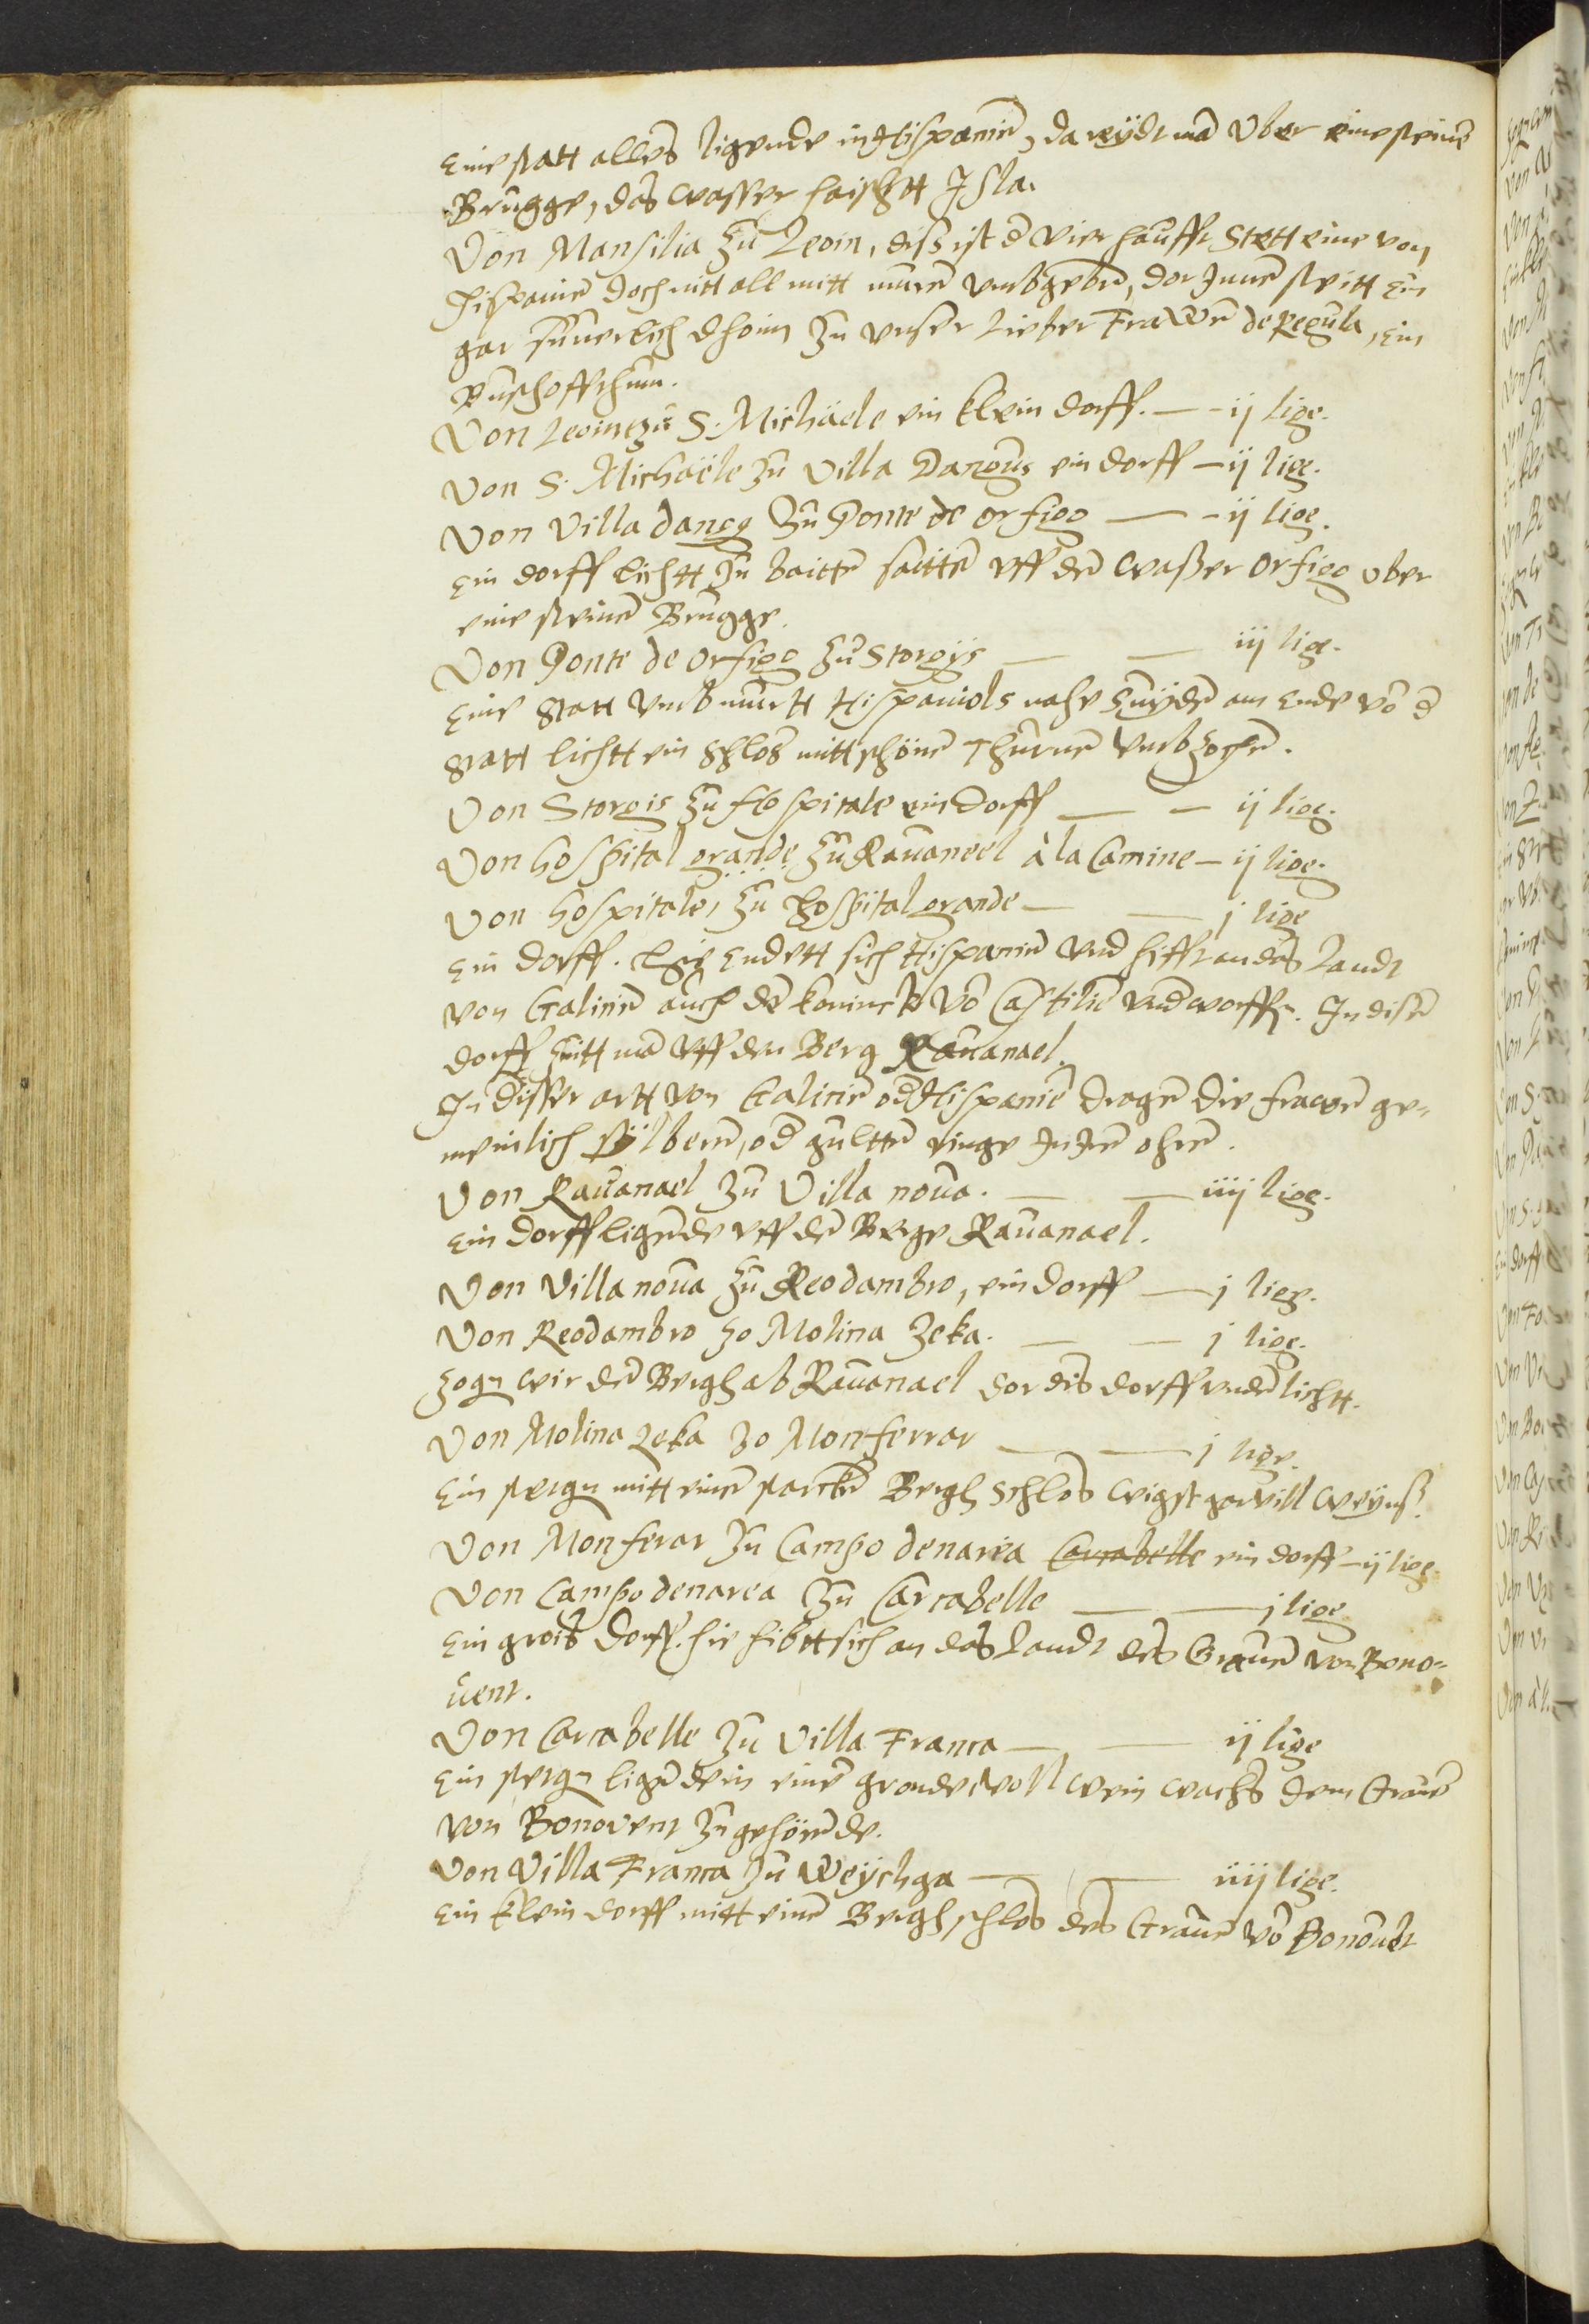 Eine statt alles ligende in Hispanien, da reÿdt mã uber eine steinẽ
Brugge, das wasser haischtt Isla.
Von Mansilia zu Leoin, diss ist d vier haufft Stett eine von
hispanien doch nitt all mitt muren umbgeben, dor Innen steitt Ein
gar suuerlich dhoim zu unser lieber Frawẽ de Regula, Ein
Buschoffthum.
Von Leoin zu S. Michaele ein klein dorff. — - ij lige.
Von S. Michaële zu Villa Dangus ein dorff — ij lige.
Von Villa dancg zu Ponte de Orfigo — - ij lige.
Ein dorff lichtt zu baittẽ saittẽ uff dem waßer Orfigo uber
eine steinẽ Brugge.
Von Ponte de orfigo zu Storgÿs — — iij lige.
Eine Statt umbmurtt Hispaniols nahe am Ende võ d
Statt lichtt ein Schlos mitt schönẽ Thurnẽ umbzochẽ.
Von Storgis zu Hospitale ein Dorff — — ij lige.
Von hospital grande zu Rauaneel à la Camine — ij lige.
Von hospitale, zu hospital grande — — j lige
Ein dorff. hie Endett sich Hispanien und hifft an das Landt
von Galicien auch dẽ koninck võ Castiliẽ undworffẽ. In disem
dorff mã uff den Berg Rauanael.
In disser artt von Galicien od Hispanien dragen die frawen ge=
meinlich sÿlberen, od gultten ringe In Iren ohren.
Von Rauanael zu Villa noua. — — iiij lige.
Ein Dorff ligende uff dẽ Berge Rauanael.
Von Villa noua zu Reodambro, ein dorff — j lige.
Von Reodambro zo Molina zeka. — — j lige.
Zogen wir dẽ Bergh ab Rauanael dor dis dorff undẽ lichtt.
Von Molina zeka zo Monferrar — — j lige.
Ein stetgen mitt einẽ starckẽ Bergh Schlos wigst gar vill weÿnß.
Von Monferar zu Campo denaria Carcabelle ein dorff — ij lige.
Von Campo denarea zu Carcabelle — — j lige
Ein grois Dorff. hie hibtt sich an das Landt des Grauen von Bono=
uent.
Von Carcabelle zu Villa Franca — — ij lige
Ein stetgen ligende in einẽ gronde voll wein wachs dem Grauẽ
von Bonovent zugehörende.
Von Villa Franca zu Weÿchga — — iiij lige.
Ein klein dorff mitt einẽ Bergh schlos des Grauẽ võ Bonouẽt